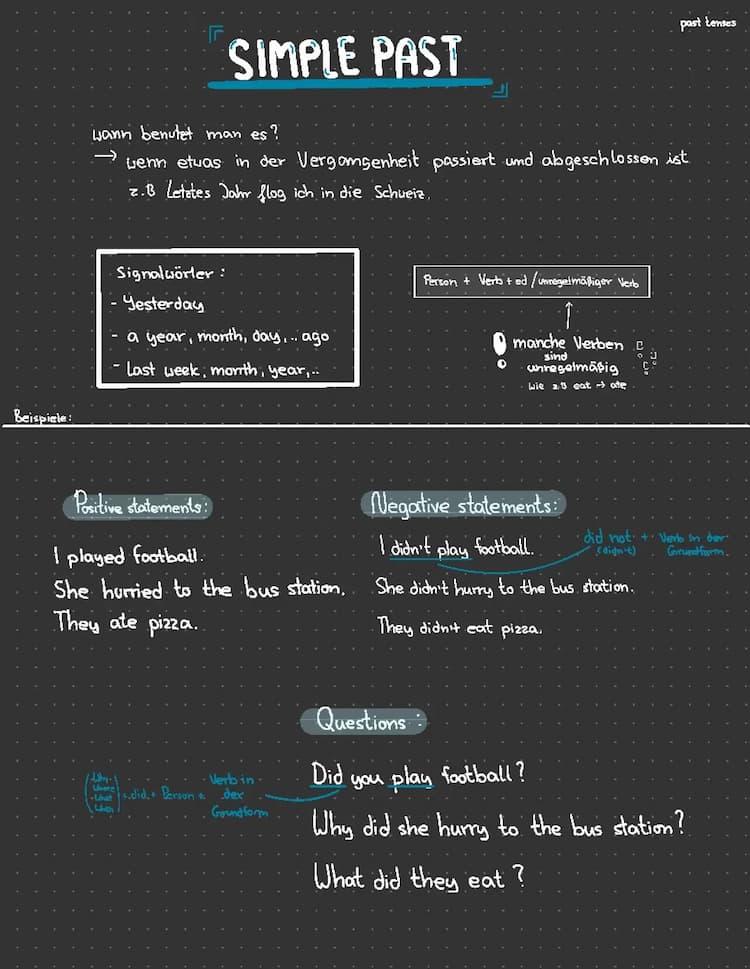 past tenses
SIMPLE PAST
wann benutzt man es?
→ wenn etwas in der Vergangenheit passiert und abgeschlossen ist
z.B Letztes Jahr flog ich in die Schweiz.
Signalwörter:
- Yesterday
- a year, month, day,.. ago
- Last week, month, year,..
Person + Verb + ed / unregelmäßiger Verb
manche Verben
sind
unregelmäßig
wie z.B eat → ate
Beispiele:
Positive statements:
I played football.
She hurried to the bus station.
They ate pizza.
Negative statements:
I didn't play football.
did not + Verb in der
(didn't) Grundform.
She didn't hurry to the bus station.
They didn't eat pizza.
Questions:
Did you play football?
Why did she hurry to the bus station?
What did they eat?
Why
Where
What
When
+ did + Person + Verb in
der
Grundform